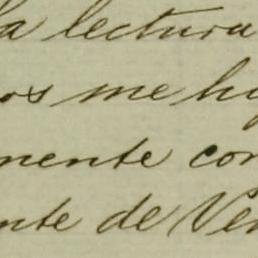 la lectura
os me h
mente con
nte de Ven